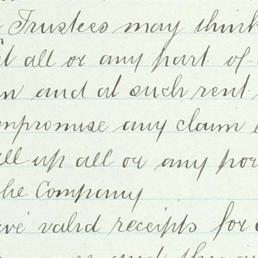 Trustees may think
all or any part of
and at such rent
compromise any claim
all up all or any por
the Company
valid receipts for